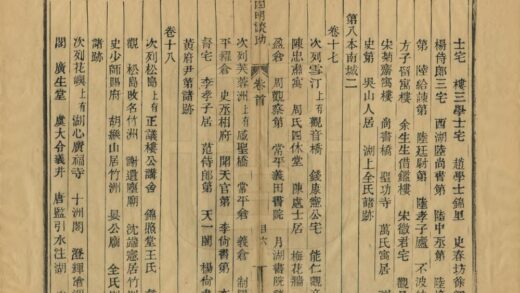 士宅 樓三學士宅 趙學士錦里 史春坊徐
楊侍郎三宅 西湖陸尚書第 陸中丞第 陸
第 陸給諫第 陸廷尉第 陸孝子廬 不波
方子留寓樓 余生生借鑑樓 宋徵君宅 觀
宋菊齋寓樓 尚書橋 聖功寺 萬氏寓居
史第 吳山人居 湖上全氏諸跡
第八本南城二
卷十七
次列雪汀上有觀音橋 錢康憲公宅 能仁觀
陳忠肅寓 周氏四休堂 陳處士居 梅花牆
盈倉 周觀察第 常平義田書院 月湖書院
四明談助 卷首 目六
次列芙蓉洲上有感聖橋 常平倉 義倉 制
平糴倉 史丞相府 聞天官第 李尚書第
督宅 李孝子居 范侍郎第 天一閣 楊尚
黃府尹第諸跡
卷十八
次列松島上有正議樓公講舍 錦照堂王氏
觀 松島敀名竹洲 謝遺塵廟 沈端憲居竹
史少師賜府 胡榘山居竹洲 晏公廟 全氏
諸跡
次列花嶼上有湖心廣福寺 十洲閣 澄輝
閣 廣生堂 虞大合義井 唐監引水注湖